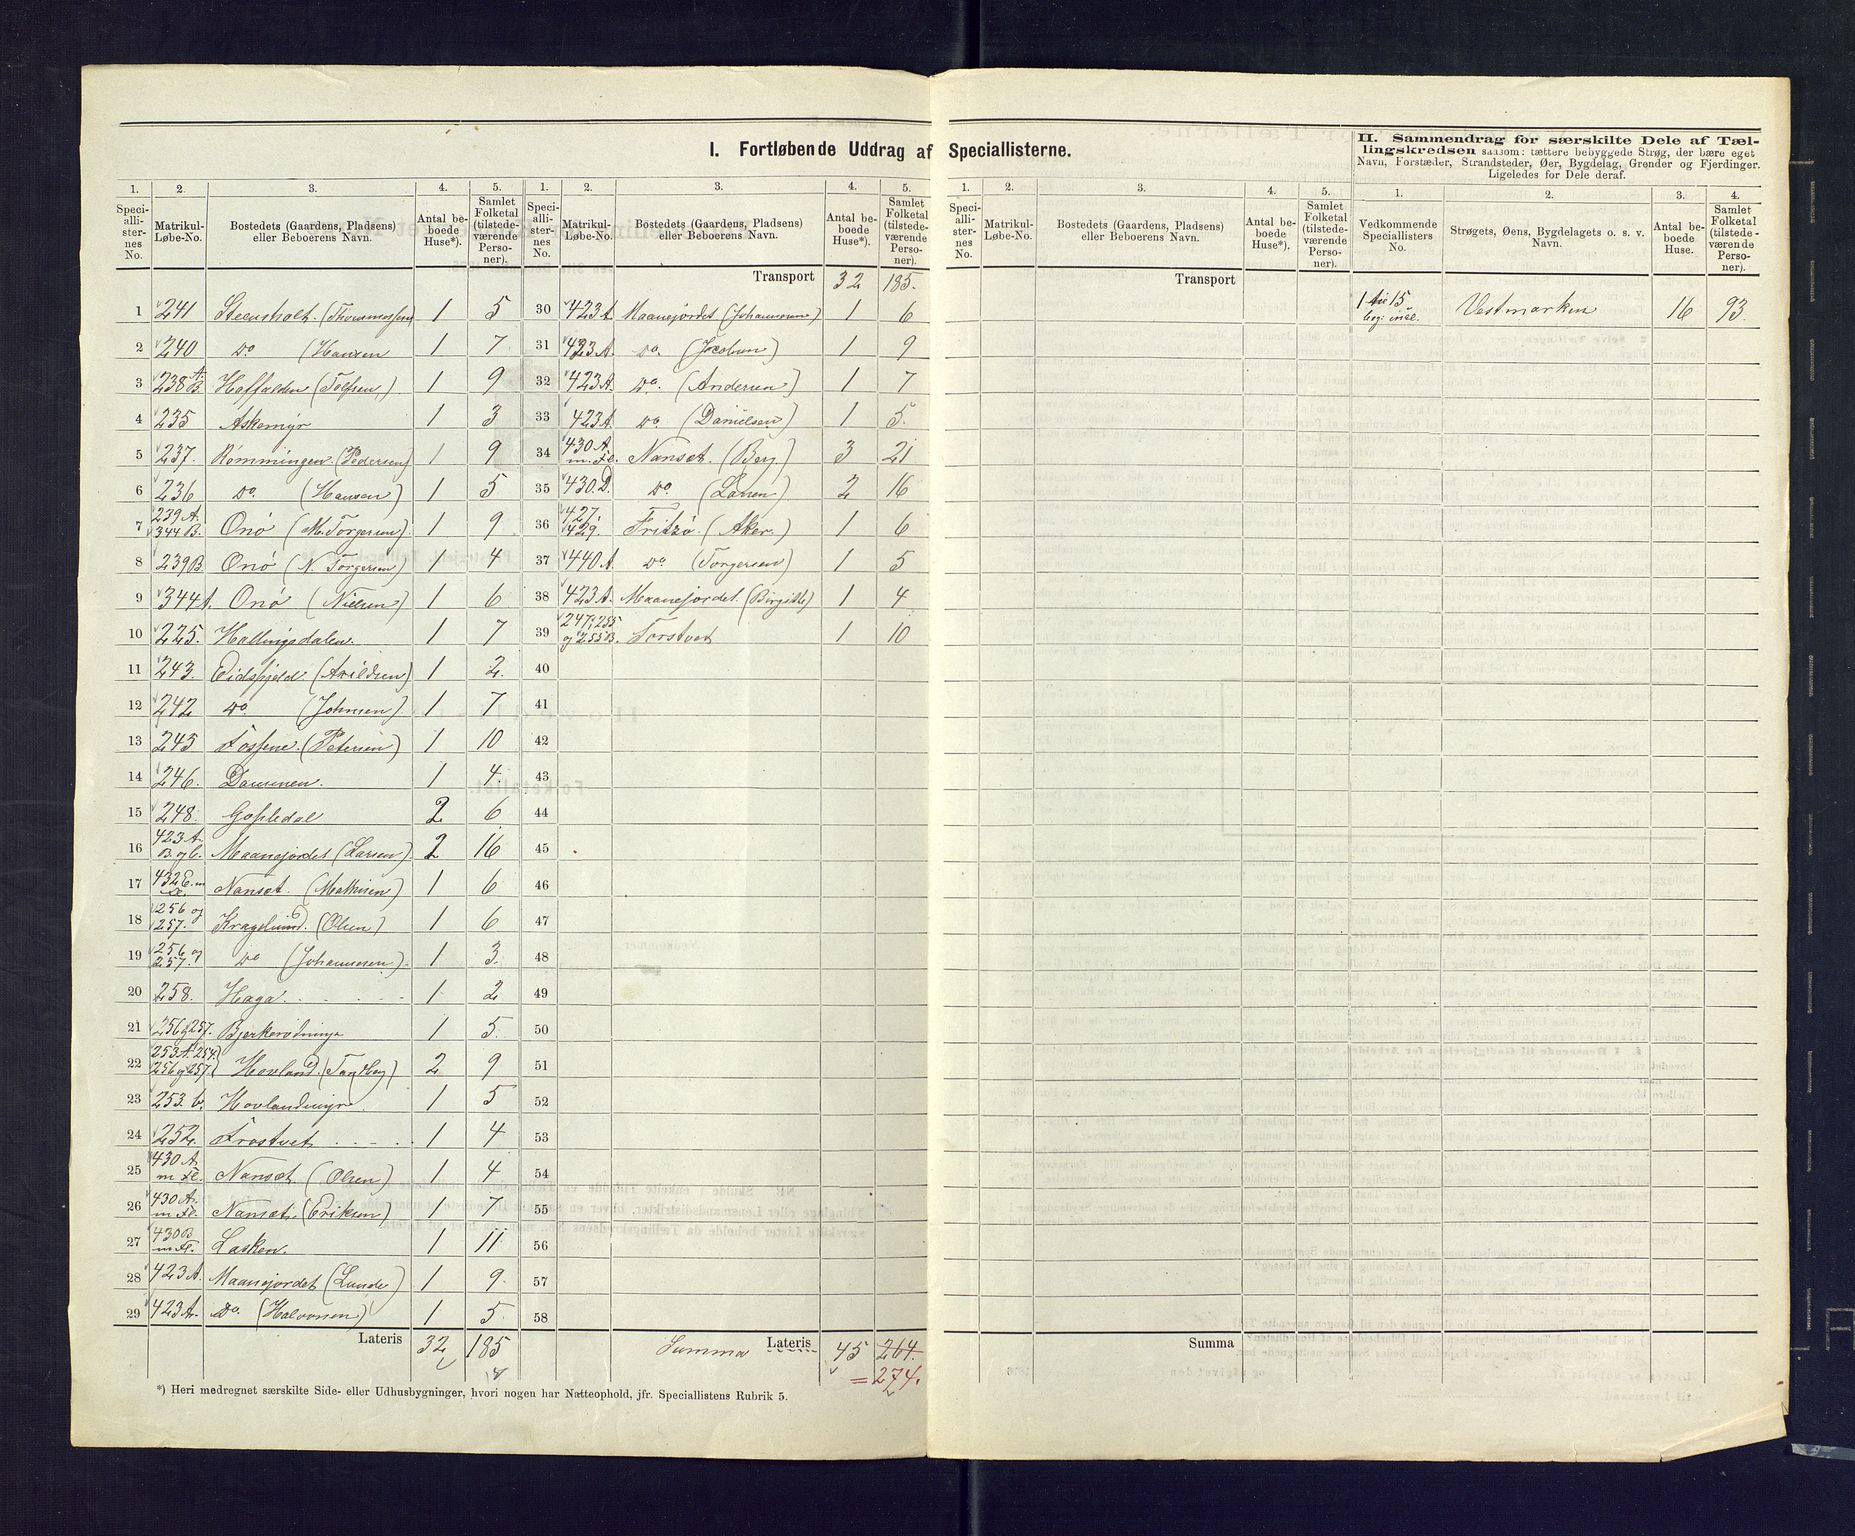 I. Fortløbende Uddrag af Speciallisterne.
II. Sammendrag for særskilte Dele af Tællingskredsen saasom: tættere bebyggede Strøg, der bære eget
Navn, Forstæder, Strandsteder, Øer, Bygdelag, Grender og Fjerdinger.
Ligeledes for Dele deraf.
1. 2. 3. 4. 5. 1. 2. 3. 4. 5.
Speciallisternes No. Matrikul-Løbe-No. Bostedets (Gaardens, Pladsens) eller Beboerens Navn. Antal beboede Huse*). Samlet Folketal (tilstedeværende Personer).
Speciallisternes No. Matrikul-Løbe-No. Bostedets (Gaardens, Pladsens) eller Beboerens Navn. Antal beboede Huse*). Samlet Folketal (tilstedeværende Personer).
1 241 Steensholt (Thommessen) 1 5
2 240 Do (Hansen 1 7
3 238 A. B. Haffalden (Tolfsen) 1 9
4 235 Askemyr 1 3
5 237. Rømmingen (Pedersen) 1 9
6 236 Do. (Hansen) 1 5
7 239 A. 344 B. Onø (M. Torgersen) 1 9
8 239 B. Onø (N. Torgersen) 1 4
9 344 A. Onø (Nielsen) 1 6
10 225. Hallingsdalen. 1 7
11 243. Eidsfjeld (Arildsen) 1 2.
12 242 Do. (Johnsen) 1 7
13 245 Fossene. (Petersen) 1 10
14 246. Dammen. 1 4.
15 248. Gopledal 2 6
16 423 A. B. og C. Maanejordet (Larsen) 2 16
17 432 E. m Fl. Nanset. (Mathisen) 1 6
18 256 og 257. Kragelund (Olsen) 1 6
19 256 og 257. Do (Johannesen) 1 3.
20 258. Haga 1 2
21 256 og 257. Bjerkerødninga 1 5.
22 253 A. 254. 256 og 257. Hovland (Tandberg) 2 9
23 253. b. Hovlandmyr 1 5
24 252. Frostvet 1 4
25 430 A. m Fl. Nanset (Olsen) 1 4
26 430 A. m Fl. Nanset. (Eriksen) 1 7
27 430 B m Fl. Lasken. 1 11
28 423 A. Maanejordet (Lunde) 1 9
29 423 A. Do. (Halvorsen) 1 5
Lateris 32 185
Transport 32 185.
30 423 A Maanejordet (Johannesen) 1 6
31 423 A. Do. (Jacobsen) 1 9
32 423 A. Do. (Andersen) 1 7
33 423 A. Do (Danielsen) 1 5.
34 430 A. m. Fl. Nanset. (Berg.) 3 21
35 430. D. Do (Larsen) 2 16
36 427. 429. Fritzø. (Aker.) 1 6
37 440 A. Do (Torgersen) 1 5
38 423 A. Maanejordet (Birgitte) 1 4
39 247, 255 og 255 B. Forstvet 1 10
40
41
42
43
44
45
46
47
48
49
50
51
52
53
54
55
56
57
58
Summa Lateris 45 264.
= 274.
*) Heri medregnet særskilte Side- eller Udhusbygninger, hvori nogen har Natteophold, jfr. Speciallistens Rubrik 5.
1. 2. 3. 4. 5. 1. 2. 3. 4.
Speciallisternes No. Matrikul-Løbe-No. Bostedets (Gaardens, Pladsens) eller Beboerens Navn. Antal beboede Huse*). Samlet Folketal (tilstedeværende Personer).
Vedkommende Speciallisters No. Strøgets, Øens, Bygdelagets o. s. v. Navn. Antal beboede Huse. Samlet Folketal (tilstedeværende Personer).
Transport
1 til 15 beg: incl. Vestmarken 16 93.
Summa